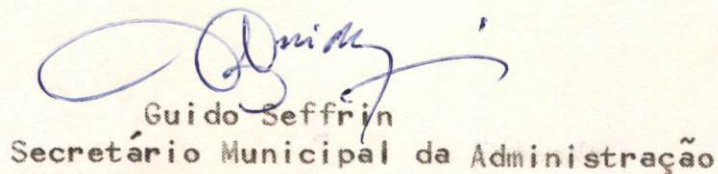 Guido Seffrin
Secretário Municipal da Administração